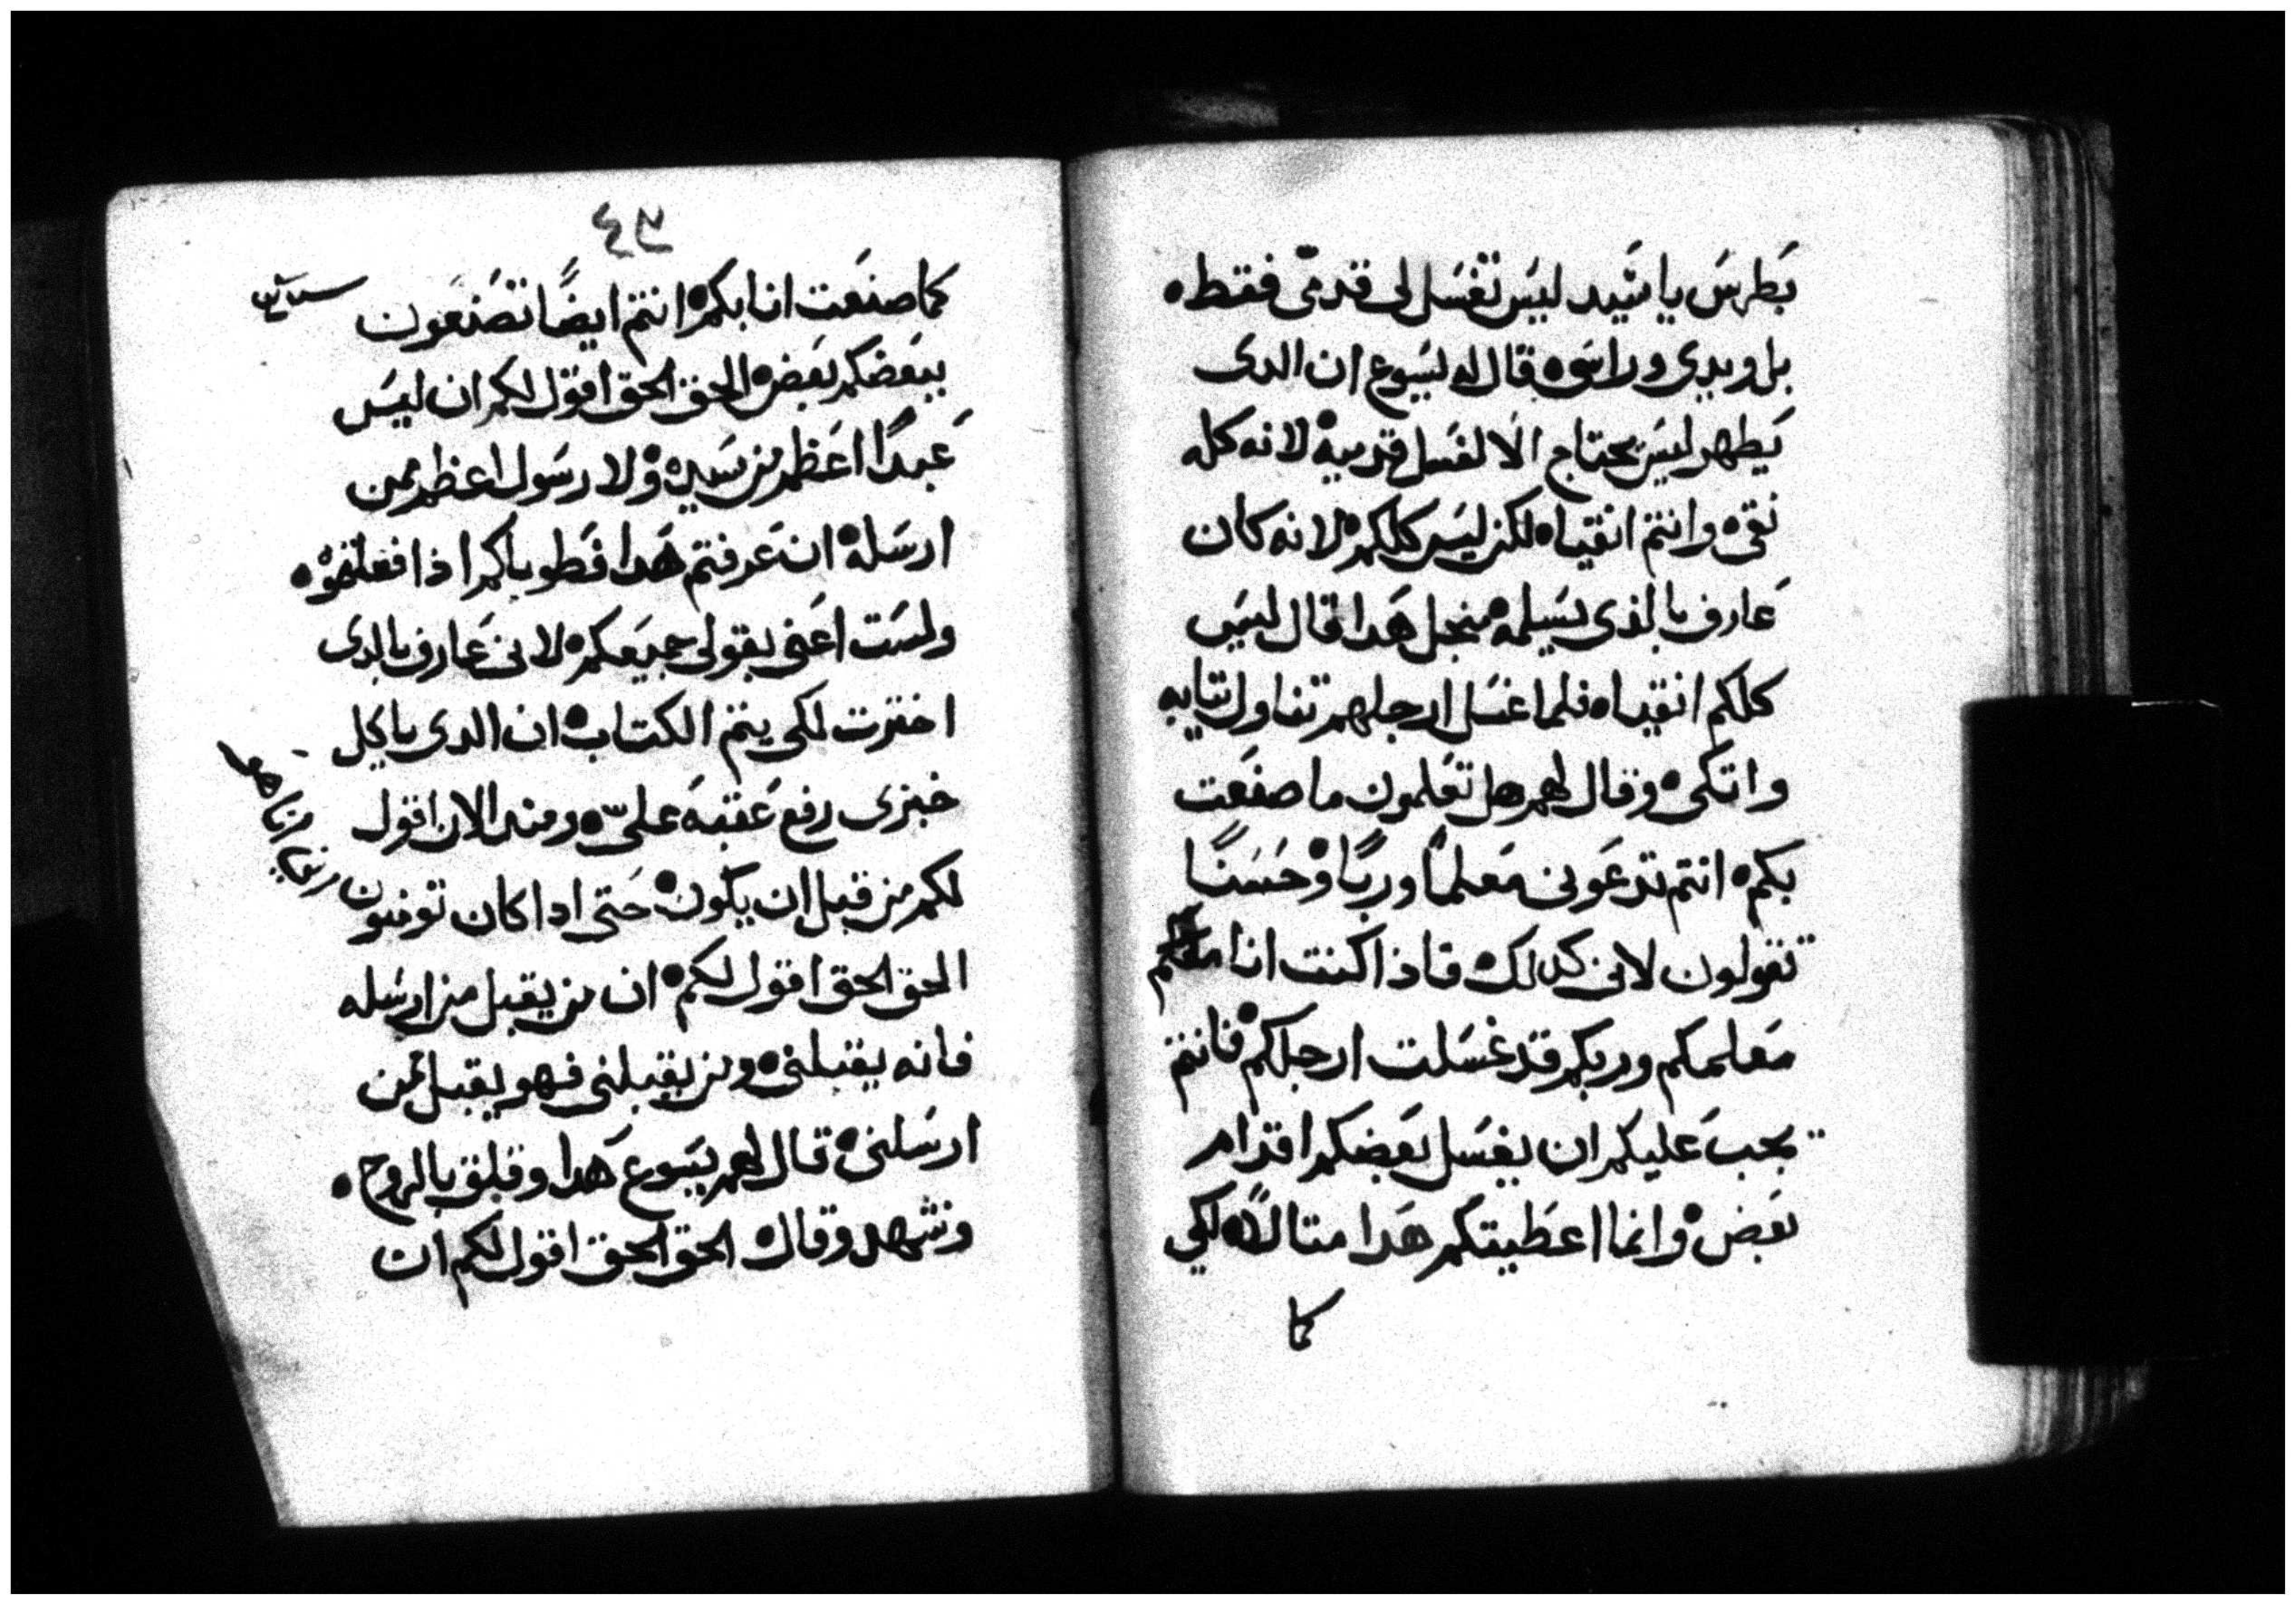 بطرس يا سيد ليس تغسل لى قدمى فقط ه
بل ويدى وراسى ه فقال له يسوع ان الدى
يطهر ليس يحتاج الا لغسل قدميه لانه كله
نقى ه وانتم انقياه لكن ليس كلكم ه لانه كان
عارف بالذى يسلمه منجل هدا قال ليس
كلكم انقياه فلما غسل ارجلهم تناول تيابه
واتكى ه وقال لهم هل تعلمون ما صنعت
بكم ه انتم تدعونى معلمًا وربًا وحسنًا
تقولون لانى كدلك ه فاذا كنت انا
معلمكم وربكم قد غسلت ارجلكم فانتم
يجب عليكم ان يغسل بعضكم اقدام
بعض ه وانما اعطيتكم هدا متالاً ه لكى
كما
كما صنعت انا بكم ه انتم ايضًا تصنعون
ببعضكم بعض ه الحق الحق اقول لكم ان ليس
عبدًا اعظم من سيده ولا رسول اعظم ممن
ارسله ه ان عرفتم هدا فطوباكم اذا فعلتموه ه
ولست اعنى بقولى جميعكم ه لانى عارف بالدى
اخترت لكى يتم الكتاب ه ان الدى ياكل
خبزى رفع عقبه علىّ ه ومند الان اقول
لكم من قبل ان يكون ه حتى ادا كان تومنون
انى انا هو
الحق الحق اقول لكم ه ان من يقبل من ارسله
فانه يقبلنى ه ومن يقبلنى فهو يقبل لمن
ارسلنى ه قال لهم يسوع هدا وقلق بالروح ه
وتشهد وقال ه الحق الحق اقول لكم ان